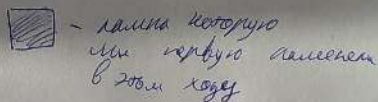 - лампа которую
мы первую поменяли
в этом ходу